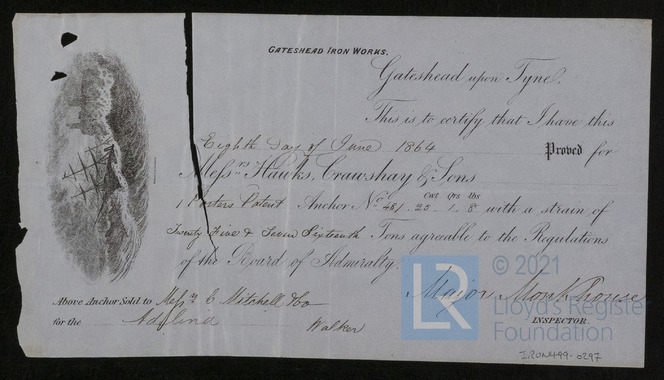 GATESHEAD IRON WORKS.
Gateshead upon Tyne.
This is to certify that I have this
Eighth day of June 1864 Proved for
Messrs Hawks, Crawshay & Sons
1 Porters Patent Anchor No 481 - 25 Cwt - 1 Qrs - 8 lbs with a strain of
Twenty Five & Seven Sixteenth Tons agreeable to the Regulations
of the Board of Admiralty.
Major Monkhouse
INSPECTOR.
Above Anchor Sold to Messrs C Mitchell & Co
for the Walker
© 2021
LR
Lloyd's Register
Foundation
IRON499-0297